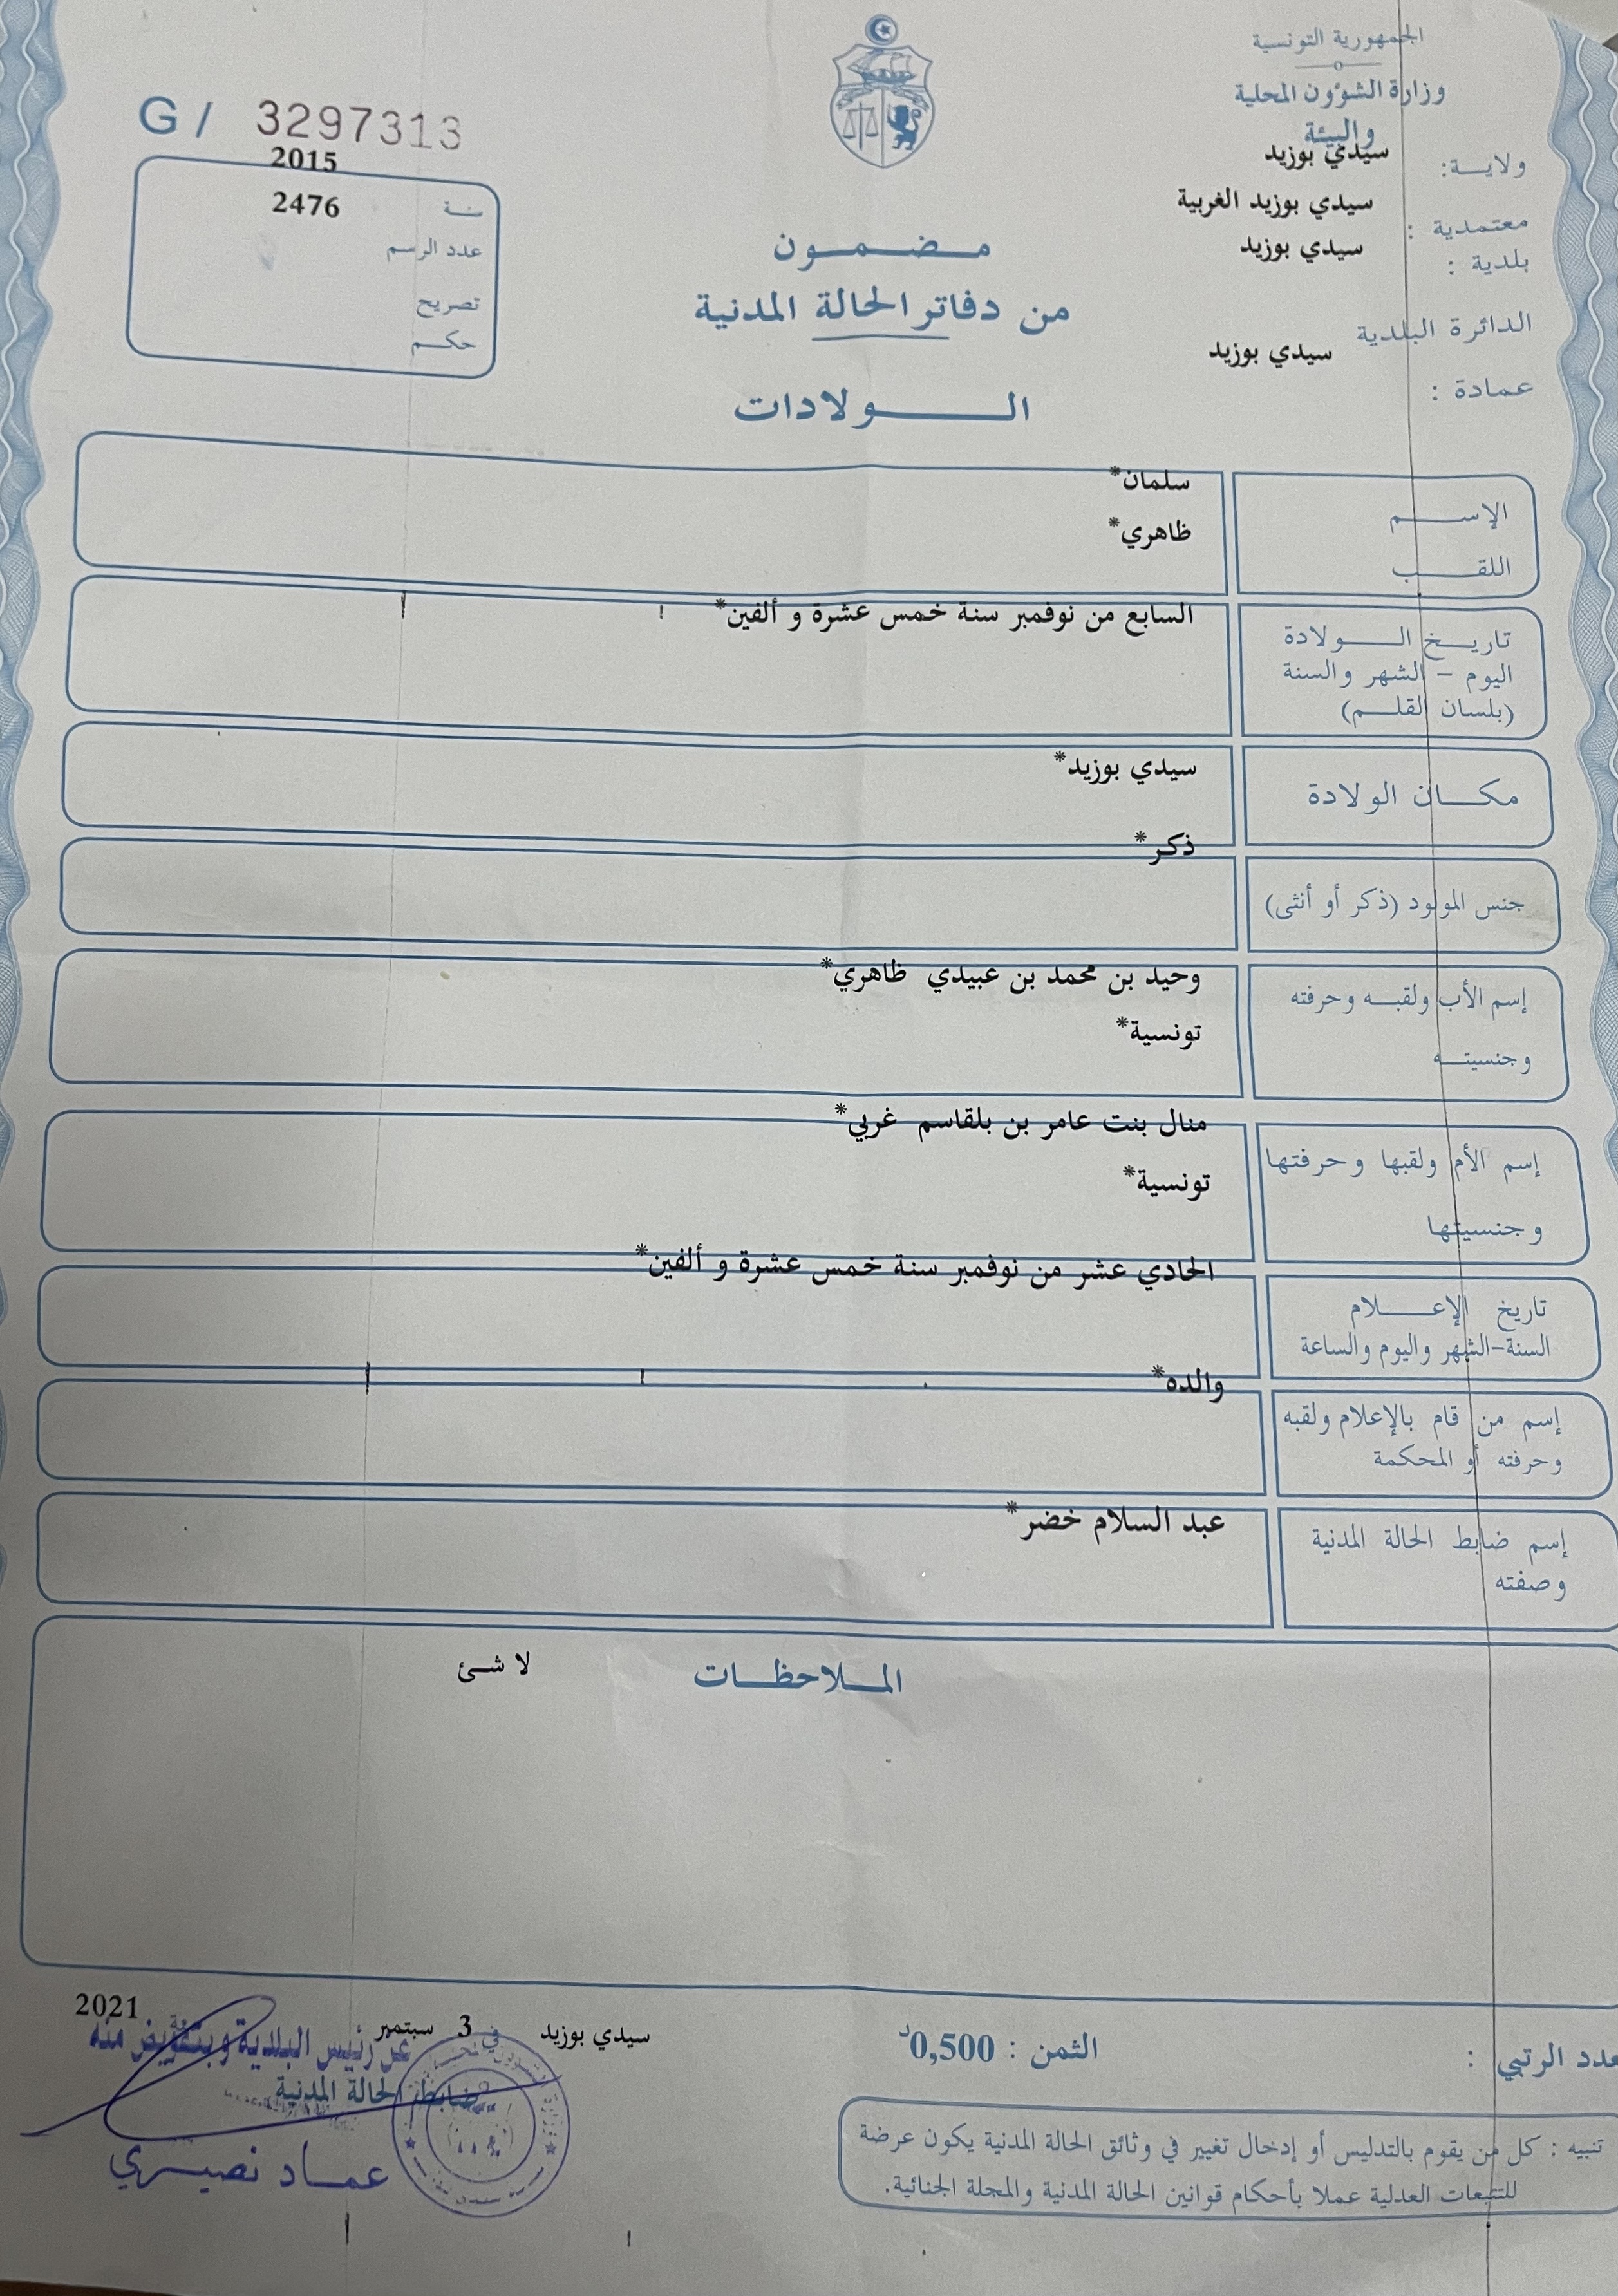 الجمهورية التونسية
وزارة الشؤون المحلية
والبيئة
ولايـــة: سيدي بوزيد
معتمدية : سيدي بوزيد الغربية
بلدية : سيدي بوزيد
الدائرة البلدية
سيدي بوزيد
عمادة :
G / 3297313
2015
سنة 2476
عدد الرسم
تصريح
حكم
مضمون
من دفاتر الحالة المدنية
الولادات
سلمان*
الإسم
ظاهري*
اللقب
السابع من نوفمبر سنة خمس عشرة و ألفين*
تاريخ الولادة
اليوم - الشهر والسنة
(بلسان القلم)
سيدي بوزيد*
مكان الولادة
ذكر*
جنس المولود (ذكر أو أنثى)
وحيد بن محمد بن عبيدي ظاهري*
إسم الأب ولقبه وحرفته
تونسية*
وجنسيته
منال بنت عامر بن بلقاسم غربي*
إسم الأم ولقبها وحرفتها
تونسية*
وجنسيتها
الحادي عشر من نوفمبر سنة خمس عشرة و ألفين*
تاريخ الإعلام
السنة-الشهر واليوم والساعة
والده*
إسم من قام بالإعلام ولقبه
وحرفته أو المحكمة
عبد السلام خضر*
إسم ضابط الحالة المدنية
وصفته
الملاحظات لا شئ
سيدي بوزيد في 3 سبتمبر 2021
عن رئيس البلدية وبتفويض منه
ضابط الحالة المدنية
عماد نصيري
الثمن : 0,500د
الرتبي :
تنبيه : كل من يقوم بالتدليس أو إدخال تغيير في وثائق الحالة المدنية يكون عرضة
للتتبعات العدلية عملا بأحكام قوانين الحالة المدنية والمجلة الجنائية.